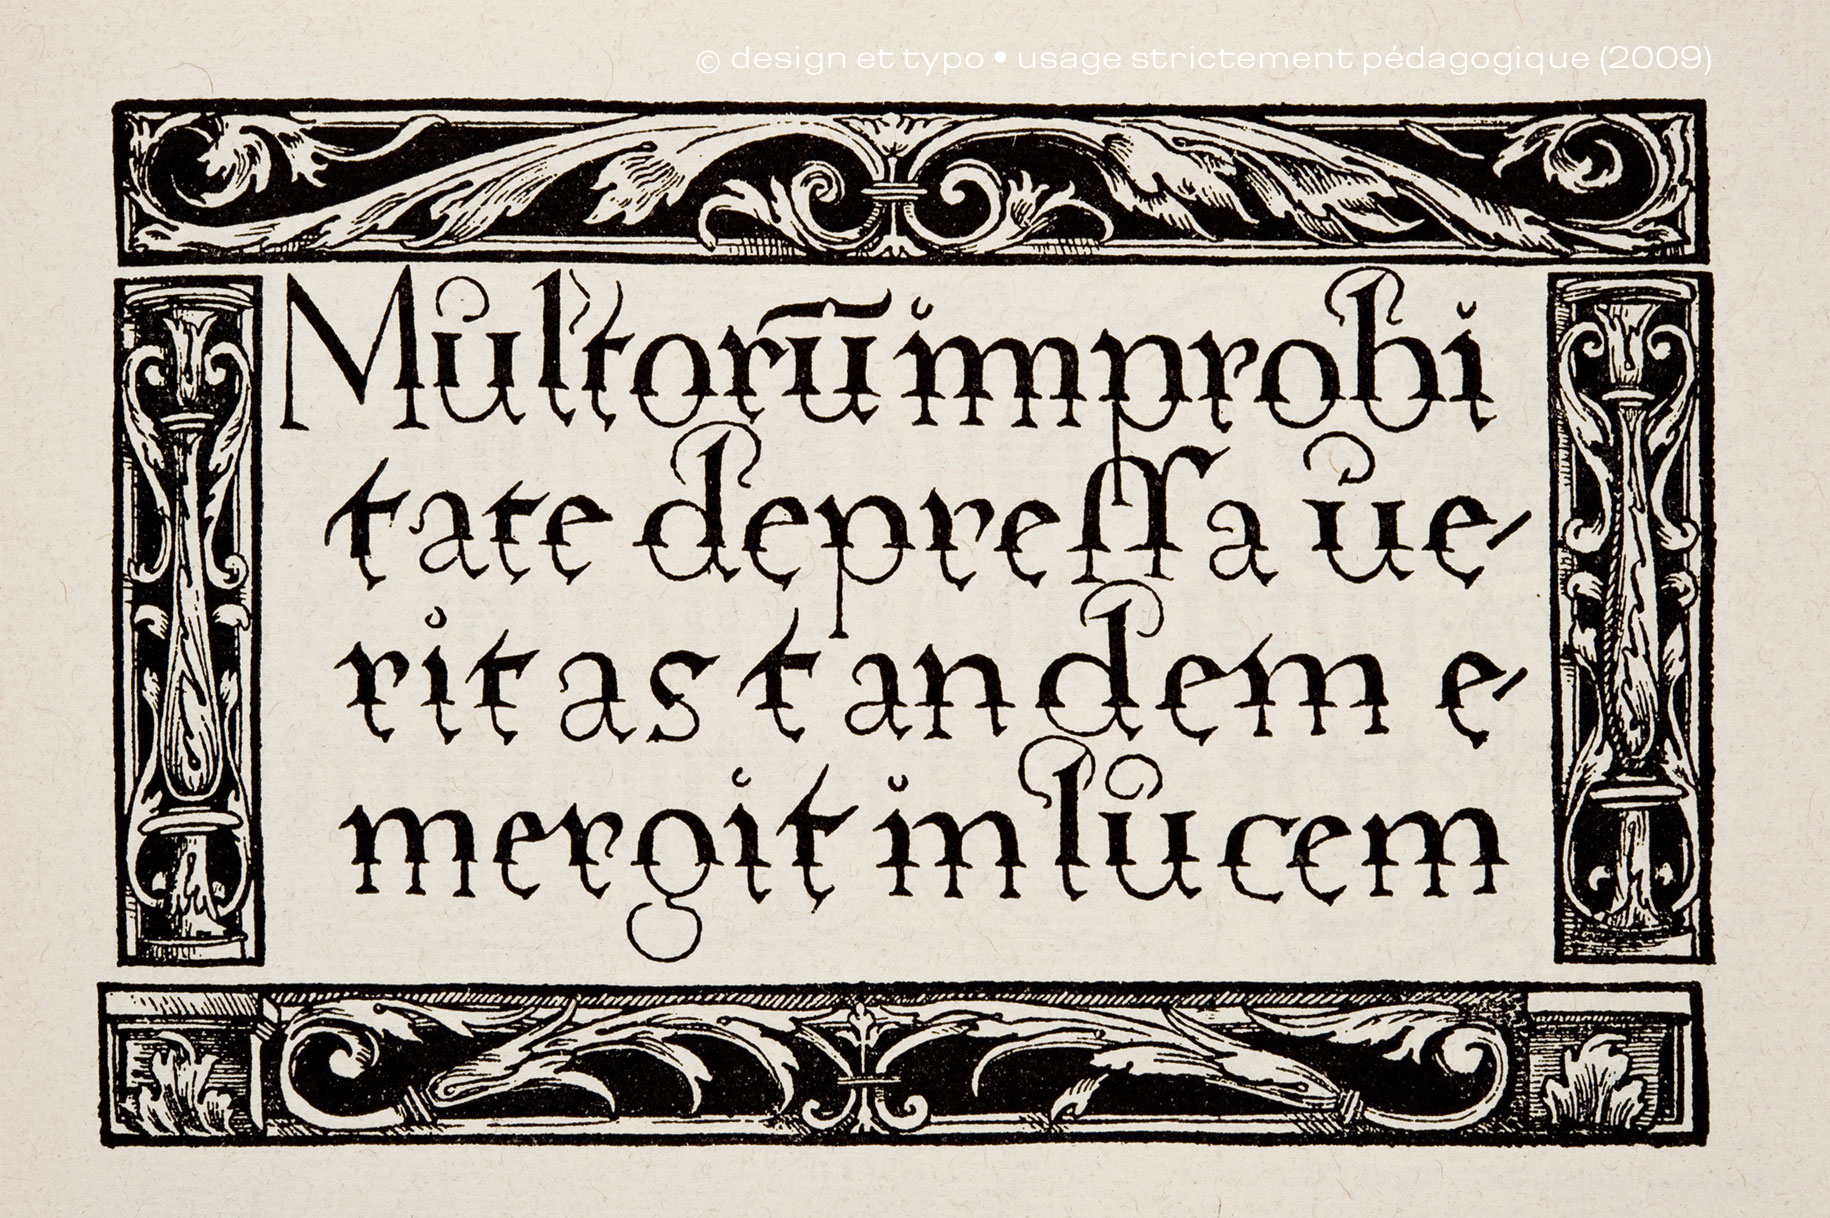 © design et typo • usage strictement pédagogique (2009)
Multorū improbi
tate depreſſa ue-
ritas tandem e-
mergit in lucem